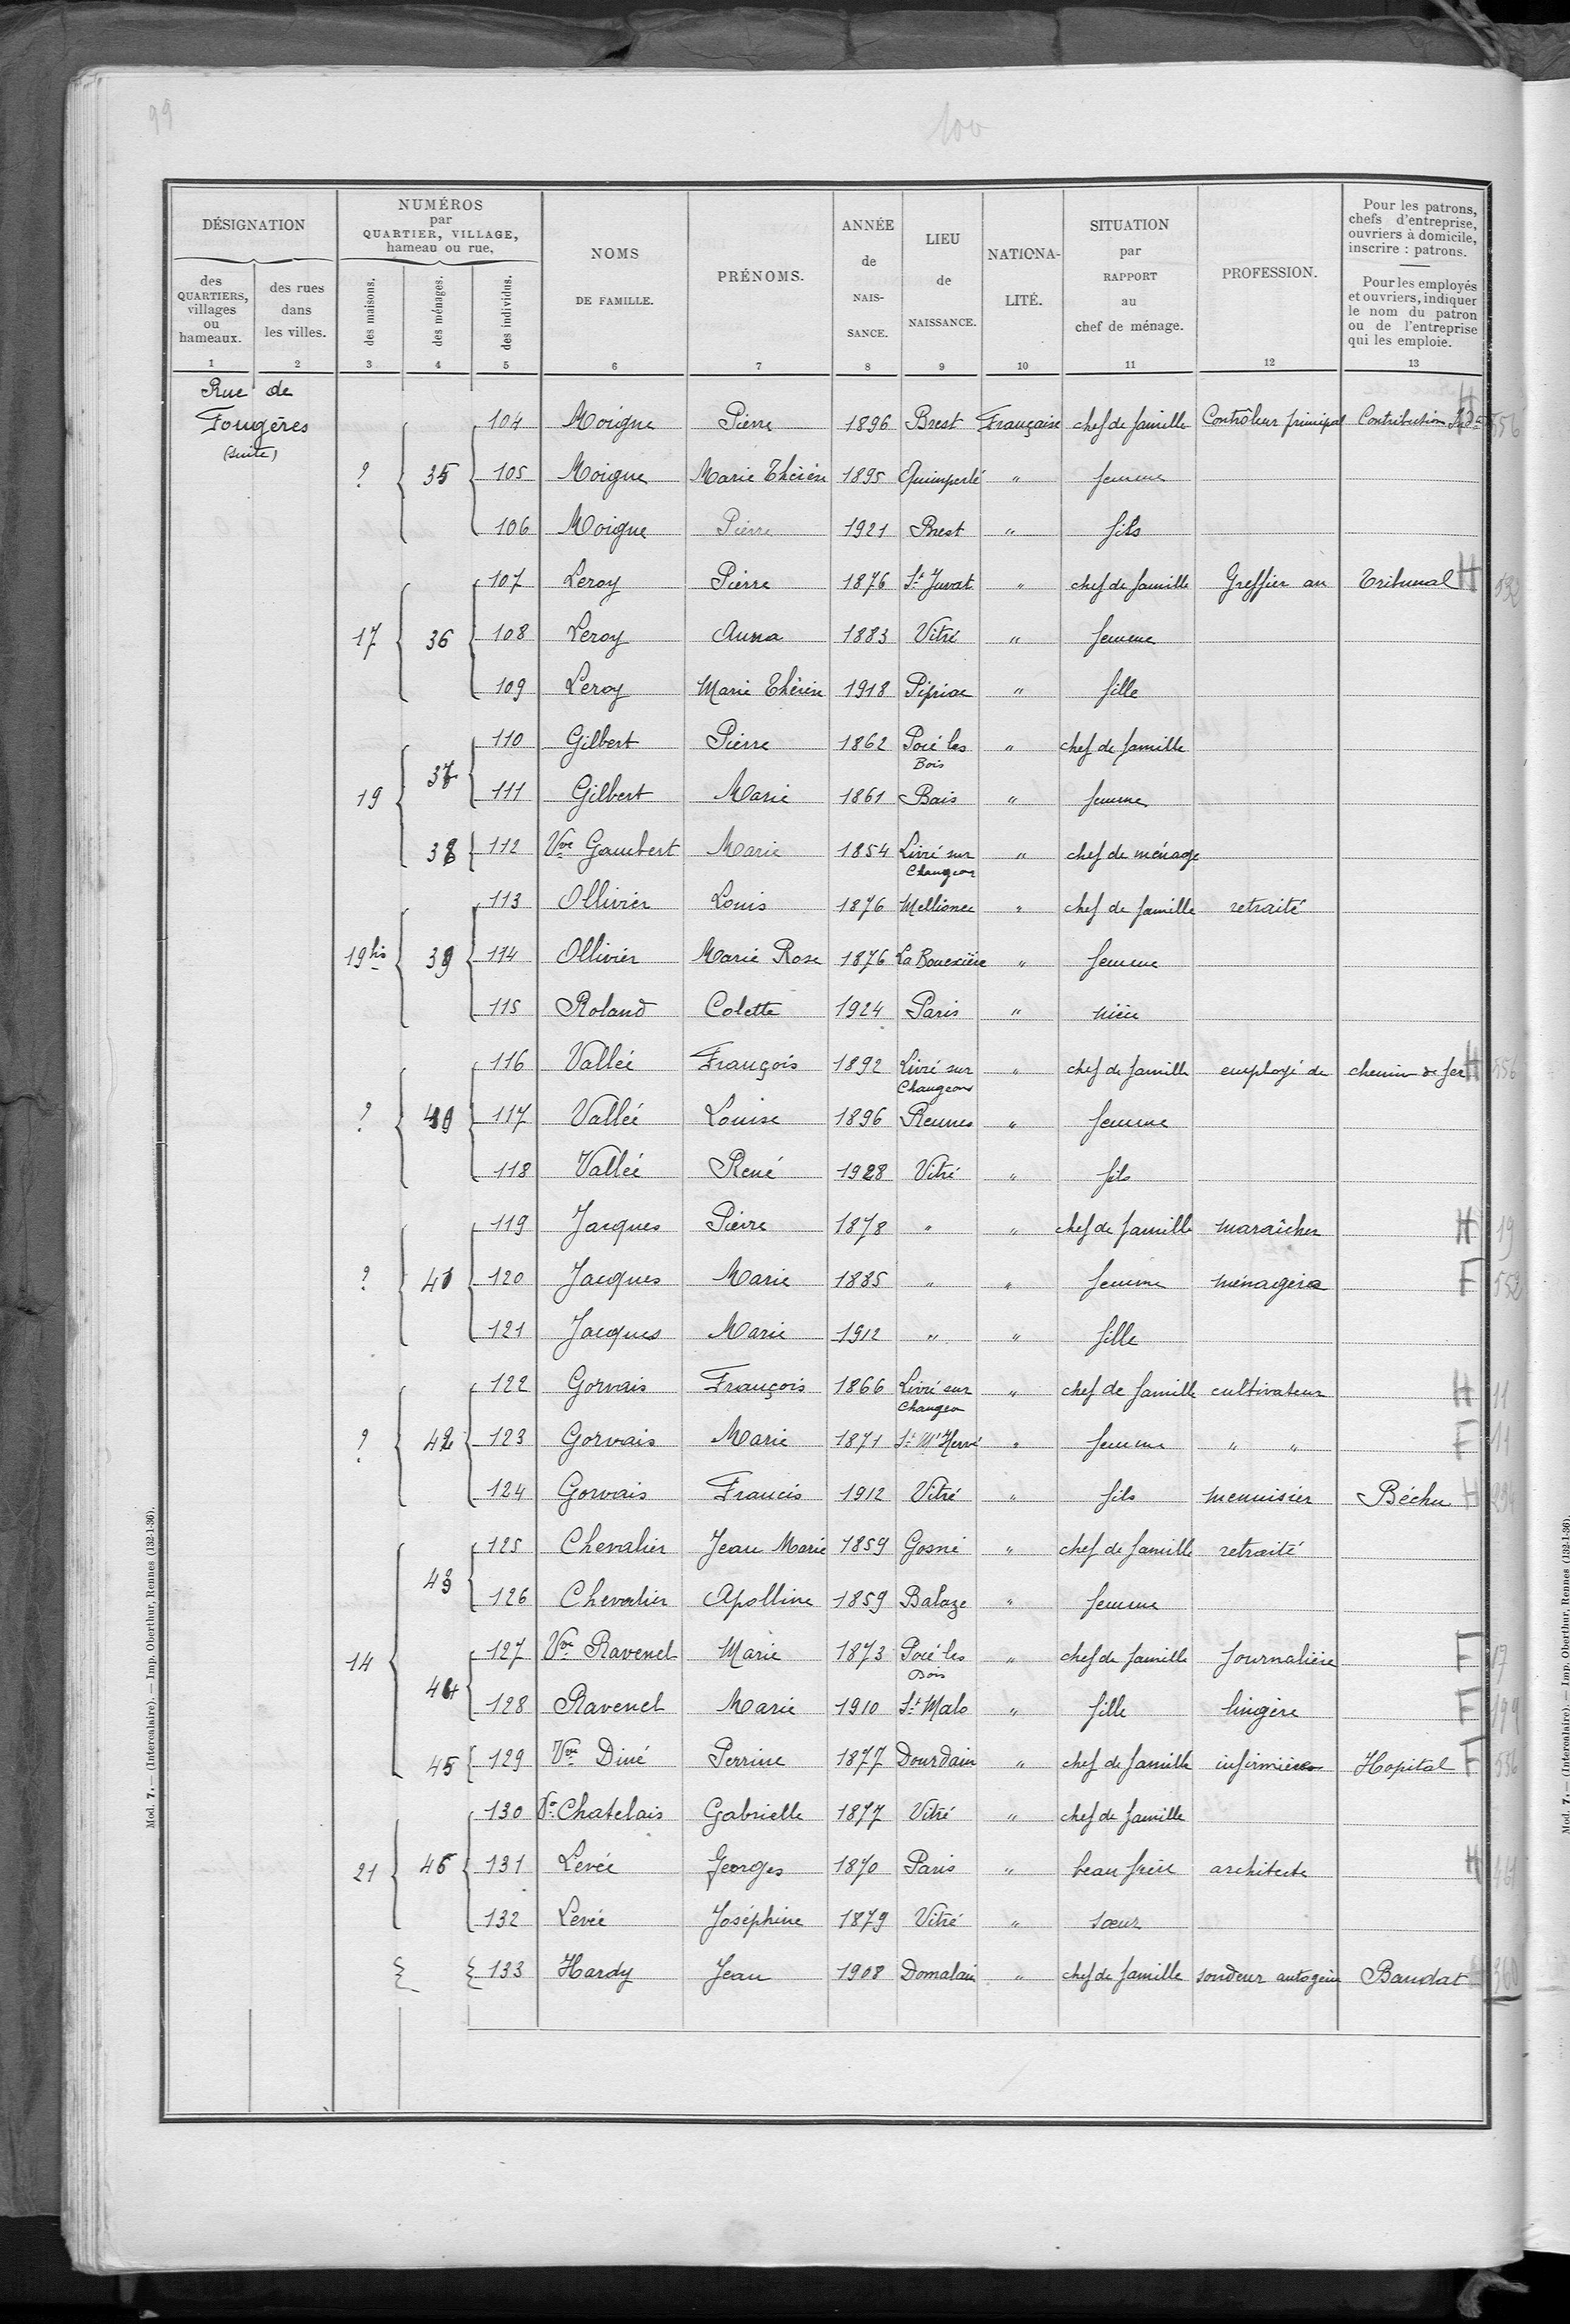 99
100
DÉSIGNATION
des QUARTIERS, villages ou hameaux.
des rues dans les villes.
NUMÉROS par QUARTIER, VILLAGE, hameau ou rue.
des maisons.
des ménages.
des individus.
NOMS DE FAMILLE.
PRÉNOMS.
ANNÉE de NAIS-SANCE.
LIEU de NAISSANCE.
NATIONA-LITÉ.
SITUATION par RAPPORT au chef de ménage.
PROFESSION.
Pour les patrons, chefs d'entreprise, ouvriers à domicile, inscrire : patrons.
Pour les employés et ouvriers, indiquer le nom du patron ou de l'entreprise qui les emploie.
1 2 3 4 5 6 7 8 9 10 11 12 13
Rue de
Fougères
(suite)
104 Moigne Pierre 1896 Brest Française chef de famille Contrôleur principal Contributions Ind. H 556
? 35 105 Moigne Marie Thérèse 1895 Quimperlé " femme
106 Moigne Pierre 1921 Brest " fils
107 Leroy Pierre 1876 St Juvat " chef de famille Greffier au Tribunal H 532
17 36 108 Leroy Anna 1883 Vitré " femme
109 Leroy Marie Thérèse 1918 Pipriac " fille
110 Gilbert Pierre 1862 Pocé les Bois " chef de famille
19 37 111 Gilbert Marie 1861 Bais " femme
38 112 Vve Gambert Marie 1854 Livré sur Changeon " chef de ménage
113 Ollivier Louis 1876 Mellionec " chef de famille retraité
19 bis 39 114 Ollivier Marie Rose 1876 La Bouexière " femme
115 Roland Colette 1924 Paris " nièce
116 Vallée François 1892 Livré sur Changeon " chef de famille employé de chemin de fer H 556
? 40 117 Vallée Louise 1896 Rennes " femme
118 Vallée René 1928 Vitré " fils
119 Jacques Pierre 1878 " " chef de famille maraîcher H 19
? 41 120 Jacques Marie 1885 " " femme ménagère F 552
121 Jacques Marie 1912 " " fille
122 Gorvais François 1866 Livré sur Changeon " chef de famille cultivateur H 11
? 42 123 Gorvais Marie 1871 St M' Hervé " femme " " F 11
124 Gorvais Francis 1912 Vitré " fils menuisier Béchu H 294
125 Chevalier Jean Marie 1859 Gosné " chef de famille retraité
43 126 Chevalier Apolline 1859 Balaze " femme
14 127 Vve Ravenel Marie 1873 Pocé les Bois " chef de famille Journalière F 17
44 128 Ravenel Marie 1910 St Malo " fille lingère F 199
45 129 Vve Diné Perrine 1877 Dourdain " chef de famille infirmière Hopital F 556
130 Ve Chatelais Gabrielle 1877 Vitré " chef de famille
21 46 131 Levée Georges 1870 Paris " beau frère architecte H 461
132 Levée Joséphine 1879 Vitré " sœur
133 Hardy Jean 1908 Domalain " chef de famille soudeur autogène Baudat H 360
Mod. 7. — (Intercalaire). — Imp. Oberthur, Rennes (132-1-36).
Mod. 7. — (Intercalaire). — Imp. Oberthur, Rennes (132-1-36).